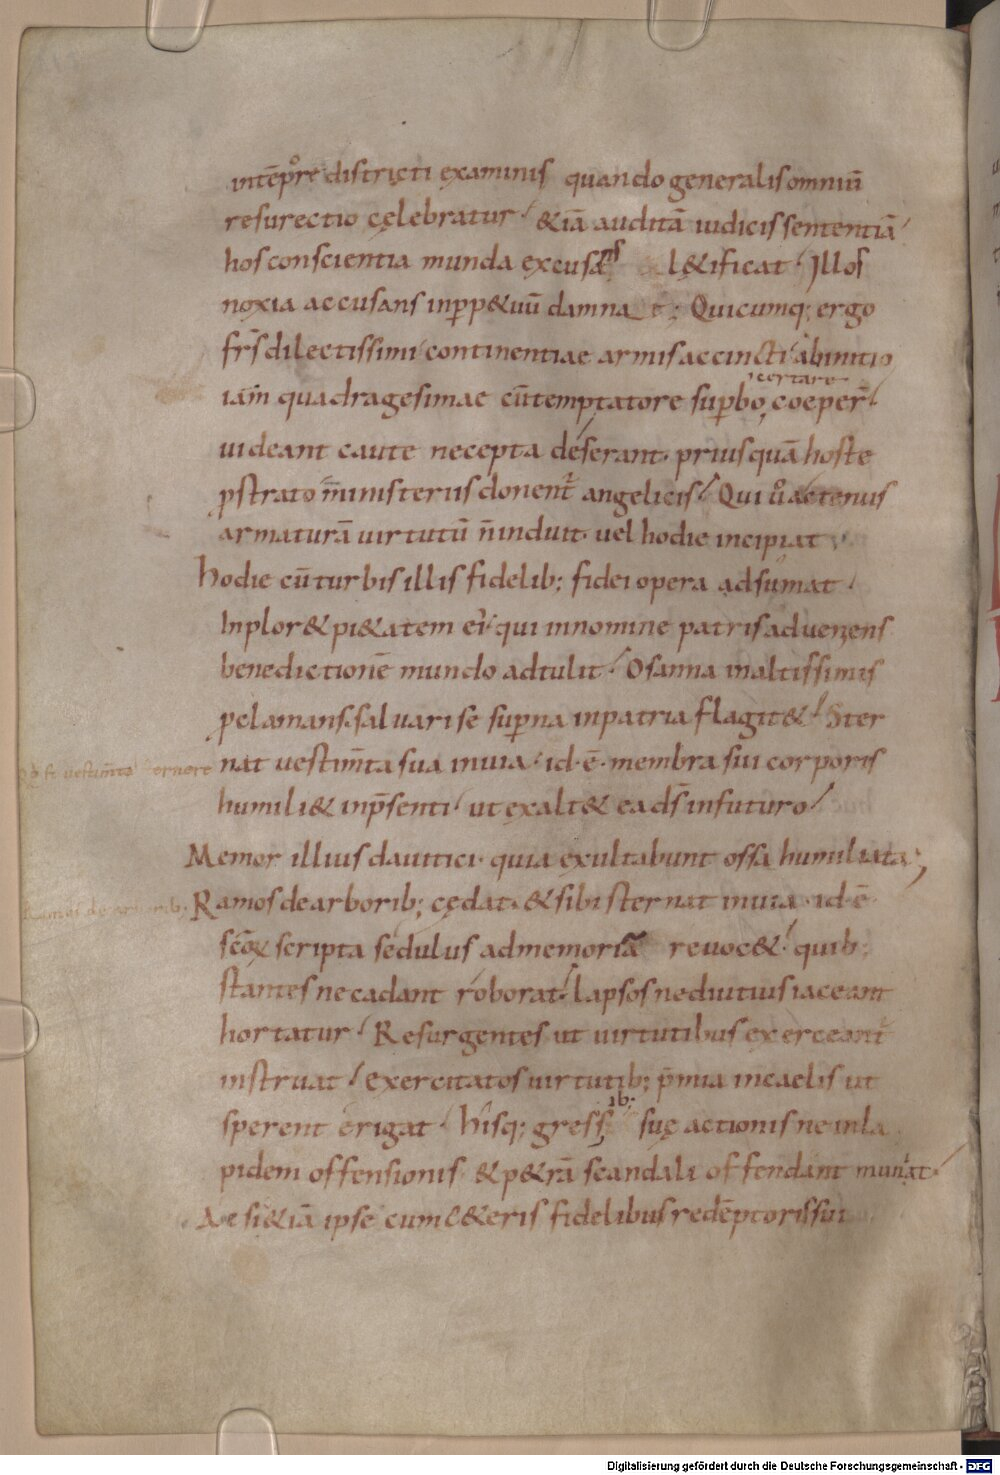 intēp̄ore districti examinis quando generalis omniū
resurectio cęlebratur & iā auditā iudicis sententiā
hos conscientia munda excusans l&ificat. Illos
noxia accusans inp̲p&uū damnat; Quicumq; ergo
fr̄s dilectissimi continentiae armis accincti ab initio
certare
iām quadragesimae cū temptatore sup̲bo coeper̄
uideant caute ne cepta deserant. priusquā hoste
p̲strato ministeriis donent̄ angelicis. Qui ů actenus
armaturā uirtutū n̄ induit. uel hodie incipiat
hodie cū turbis illis fidelib; fidei opera adsumat.
Inplor& pi&atem ei qui in nomine patris adueniens
benedictionē mundo adtulit. Osanna in altissimis
p̲clamans. saluari se sup̲na in patria flagit&. Ster
nat uestim̄ta sua in uia. id. ē. membra sui corporis
humili& in p̄senti. ut exalt& ea d̄s in futuro.
Memor illius dauitici. quia exultabunt ossa humiliata;
Ramos de arborib; cędat. & sibi sternat in uia. id. ē.
scōꝝ scripta sedulus ad memoriā reuoc&. quib;
stantes ne cadant roborat. lapsos ne diutius iaceant
hortatur. Resurgentes ut uirtutibus exerceant̄
instruat. exercitatos uirtutib; p̄mia in caelis ut
sperent erigat. Hisq; gressib; suę actionis ne in la
pidem offensionis. & p&rā scandali offendant muniat.
Ac si &iā ipse cum c&eris fidelibus redēptoris sui
Ramos de arborib;